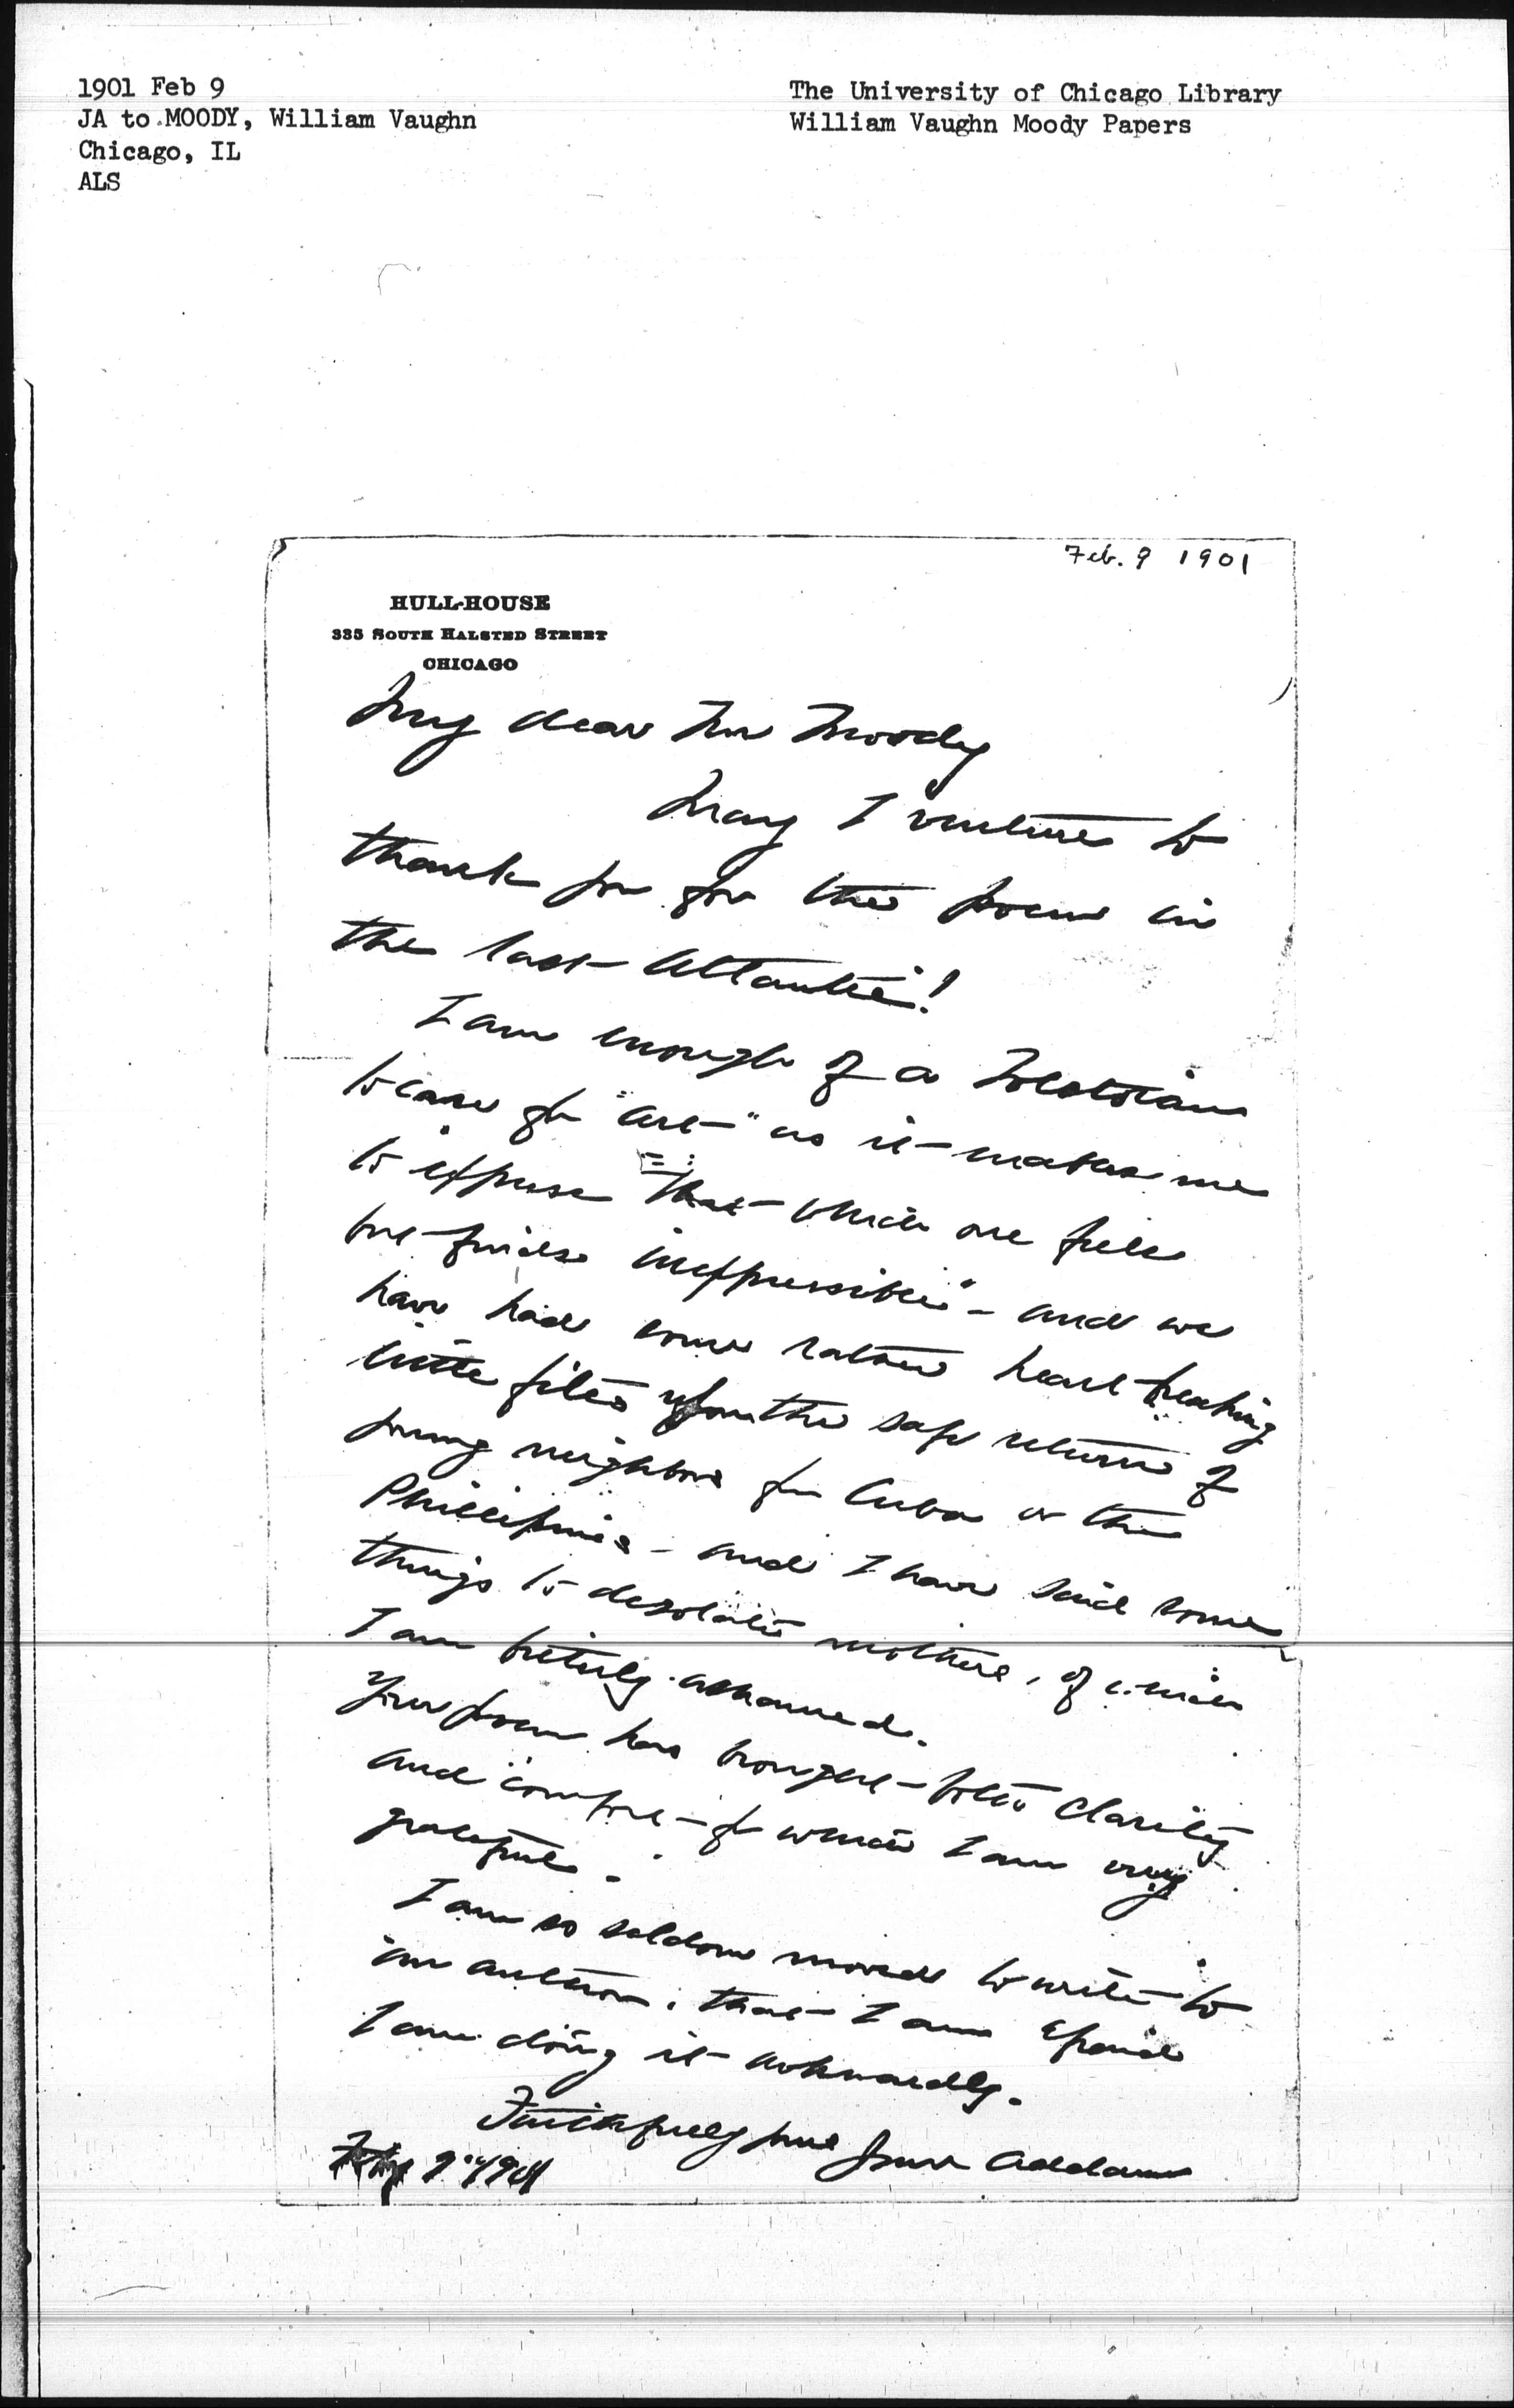 1901 Feb 9
JA to MOODY, William Vaughn
Chicago, IL
ALS
The University of Chicago Library
William Vaughn Moody Papers
Feb. 9 1901
HULL-HOUSE
335 SOUTH HALSTED STREET
CHICAGO
My dear Mr Moody
May I venture to
thank you for the poem in
the last Atlantic!
I am enough of a Tolstoian
to care for "art" as it makes me
to express "that which one feels
but finds inexpressible" - and we
have had some rather heart-breaking
little fêtes upon the safe return of
young neighbors from Cuba or the
Phillipines - and I have said some
things to desolate mothers, of which
I am bitterly ashamed.
Your poem has brought both clarity
and comfort - for which I am very
grateful -
I am so seldom moved to write to
an author, that I am afraid
I am doing it awkwardly.
Faithfully yours Jane Addams
Feby 9" 1901